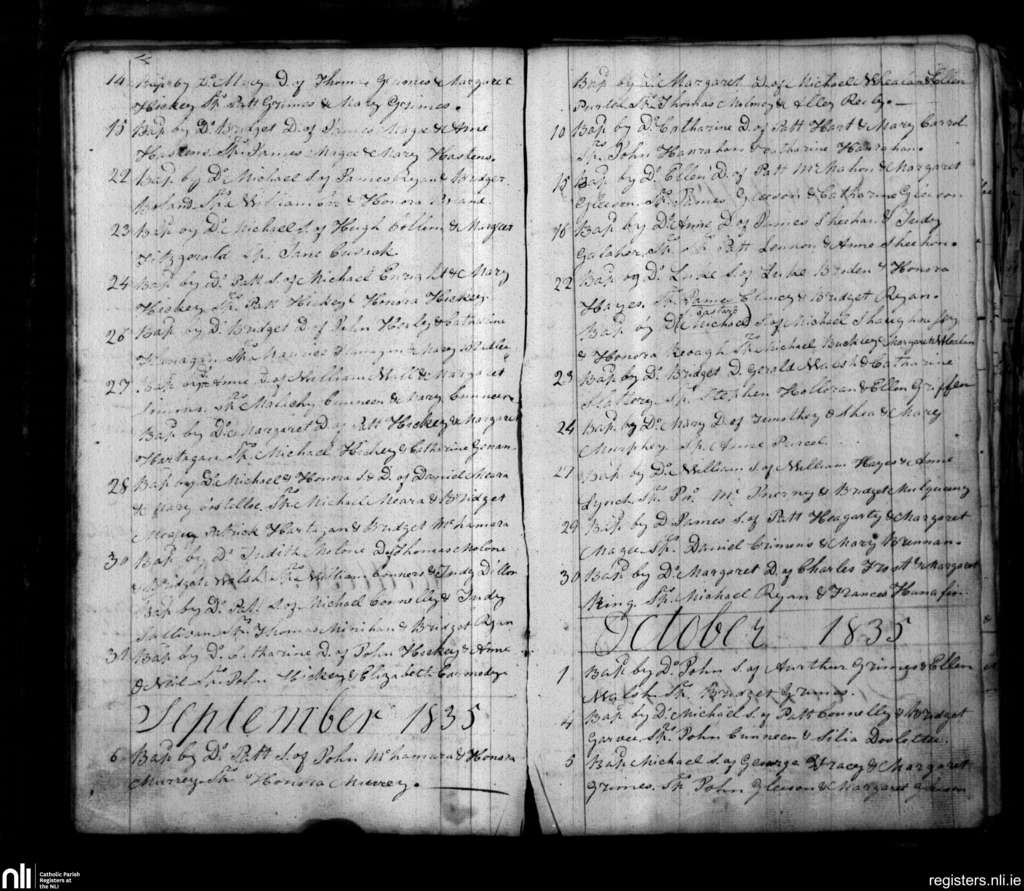 14 Bap by Do Mary D. of Thomas Grimes & Margaret
Hickey Sps Patt Grimes & Mary Grimes.
15 Bap by Do Bridget D. of James Magee & Anne
Hastens. Sps James Magee & Mary Hastens.
22 Bap. by Do Michael S. of James Ryan & Bridget
Boland Sps William & Honora
23 Bap by Do Michael S. of Hugh Collins & Margret
Fitzgerald Sp. Jane Cusack.
24 Bap by Do Patt S. of Michael Enright & Mary
Hickey Sps Patt Hickey & Honora Hickey.
26 Bap. by Do Bridget D. of John Healy & Catharine
Flanagan Sps & Mary
27 Bap. by Do Anne D. of William Hill & Margaret
Sps Malichy Cunneen & Mary Cunneen
Bap by Do Margaret D. of Patt Hickey & Margaret
Hartagan Sps Michael Hickey & Catharine
28 Bap by Do Michael & Honora S. & D. of Daniel Meara
& Mary Costelloe Sps Michael Meara & Bridget
Patrick Hartagan & Bridget McNamara
30 Bap by Do Judith Molone D. of Thomas Molone
& Bridget Walsh Sps William Conners & Judy Dillon
Bap by Do Patt S. of Michael Connelly & Judy
Sullivan Sps Thomas Minihan & Bridget Ryan
31 Bap by Do Catharine D. of John Hickey & Anne
O Neil Sps John Hickey & Elizabeth Carmody
September 1835
6 Bap by Do Patt S. of John McNamara & Honora
Murrey Sps Honora Murrey.
Bap by Do Margaret D. of Michael & Ellen
Purtel Sps Thomas & Elley
10 Bap by Do Catharine D. of Patt Hart & Mary Carrol
Sps John Hanrahan & Catharine Hanrahan.
15 Bap by Do Ellen D. of Patt McMahon & Margaret
Gleeson Sps James Gleeson & Catharine Gleeson
16 Bap by Do Anne D. of James Sheehan & Judy
Galaher Sps Patt Lennon & Anne Sheehan.
22 Bap by Do Luke S. of Luke Broden & Honora
Hayes. Sps James Clancy & Bridget Ryan.
(bastard)
Bap by Do Michael S. of Michael Shaughnessy
& Honora Keough Sps Michael Buckley & Margaret
23 Bap by Do Bridget D. Gerald Walsh & Catharine
Slattery Sps Stephen Holloran & Ellen Griffen
24 Bap by Do Mary D. of Timothey O Shea & Mary
Murphey Sp. Anne Purcel
27 Bap by Do William S. of William Hayes & Anne
Lynch Sps & Bridget Mulqueeny
29 Bap by Do James S. of Patt Heagarty & Margaret
Magee Sps Daniel & Mary Brennan.
30 Bap by Do Margaret D. of Charles Frost & Margaret
King Sps Michael Ryan & Frances Hanafin.
October 1835
1 Bap by Do John S. of Aurthur Grimes & Ellen
Walsh Sps Bridget Grimes.
4 Bap by Do Michael S. of Patt Connelly & Bridget
Garvey Sps John Cunneen & Silia
5 Bap Michael S. of George Tracey & Margaret
Grimes. Sps John Gleeson & Margaret Gleeson
nli Catholic Parish
Registers at
the NLI
registers.nli.ie